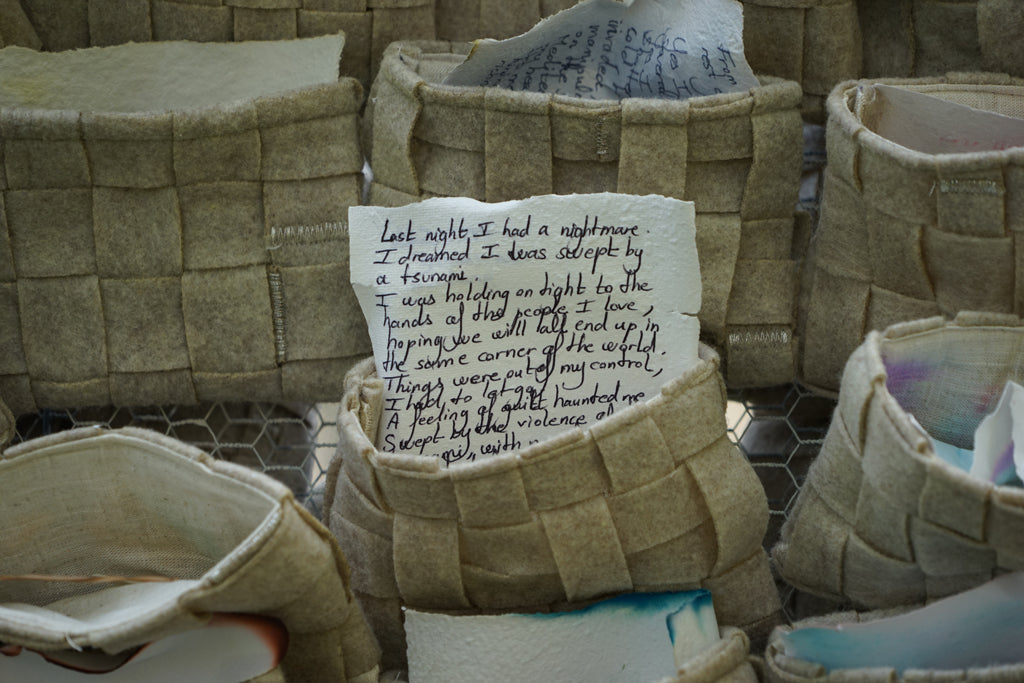 Yes I
invaded
on the
Last night I had a nightmare.
I dreamed I was swept by
a tsunami.
I was holding on tight to the
hands of the people I love,
hoping we will all end up in
the same corner of the world.
Things were out of my control,
I had to let go.
A feeling of guilt haunted me
Swept by the violence of
with